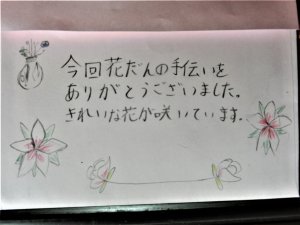 今回花だんの手伝いを
ありがとうございました。
きれいな花が咲いています。